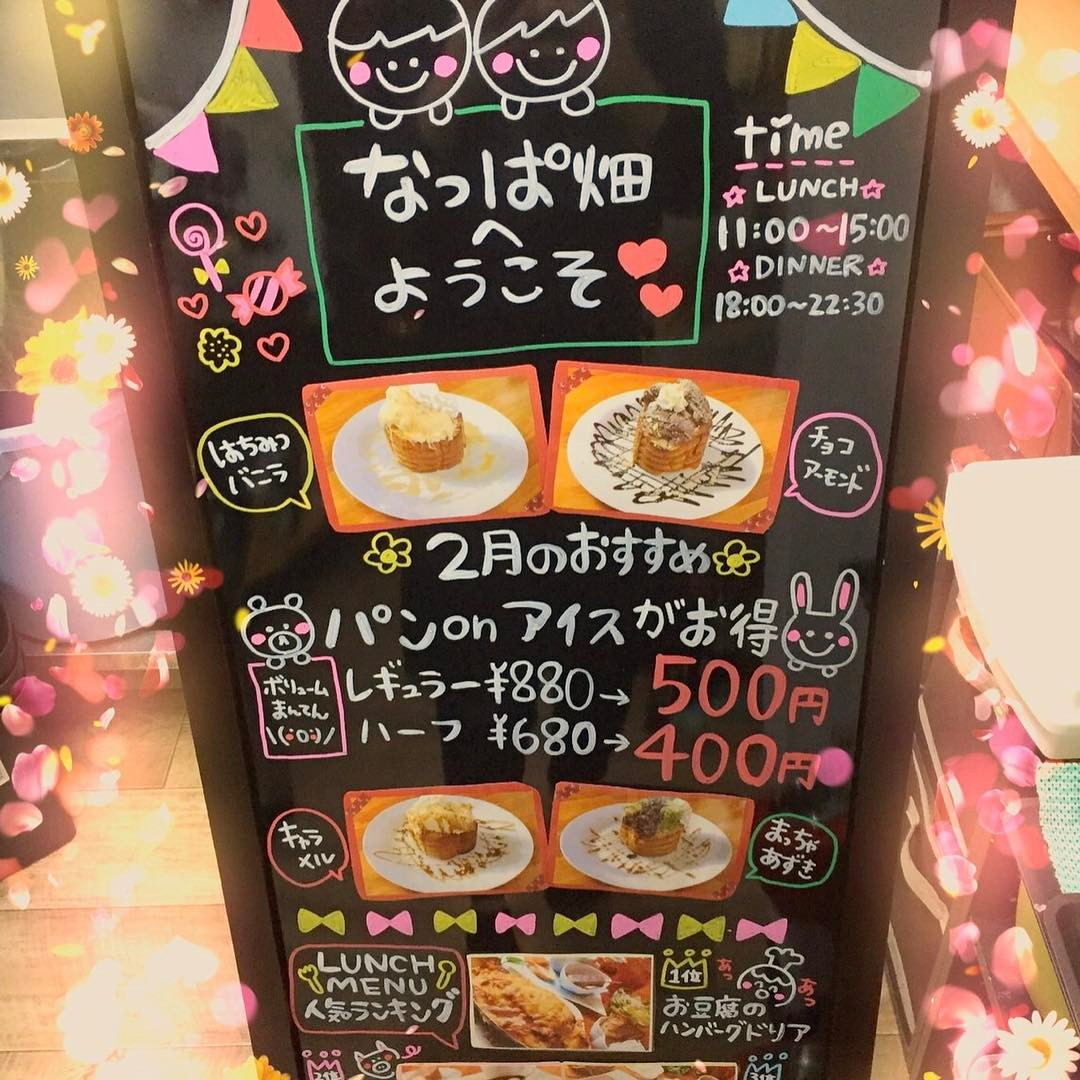 なっぱ畑
へ
ようこそ
time
LUNCH
11:00~15:00
DINNER
18:00~22:30
はちみつ
バニラ
チョコ
アーモンド
2月のおすすめ
パンonアイスがお得
ボリューム
まんてん
レギュラー ¥880→ 500円
ハーフ ¥680→ 400円
キャラ
メル
まっちゃ
あずき
LUNCH
MENU
人気ランキング
1位
あっ
あっ
お豆腐の
ハンバーグドリア
2位
3位